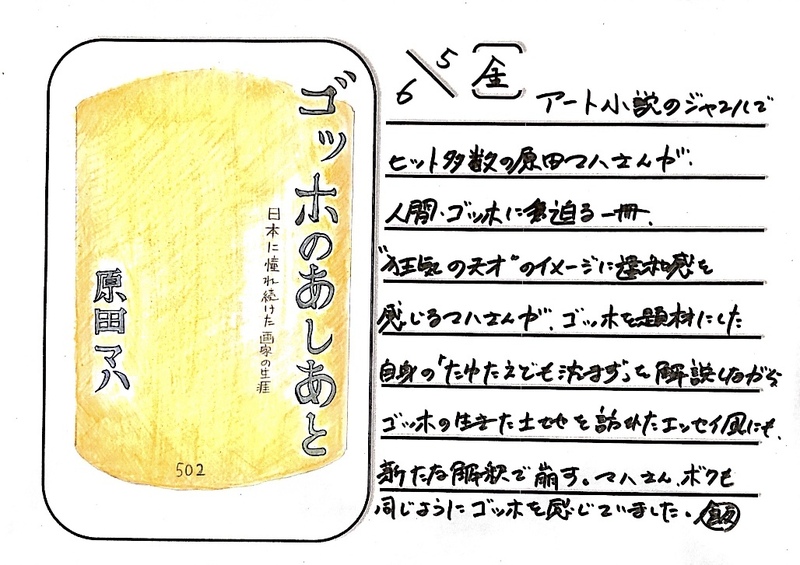 ゴッホのあしあと
日本に憧れ続けた画家の生涯
原田マハ
502
6/5 金
アート小説のジャンルで
ヒット多数の原田マハさんが、
人間・ゴッホに迫る一冊。
"狂気の天才"のイメージに違和感を
感じるマハさんが、ゴッホを題材にした
自身の「たゆたえども沈まず」を解説しながら
ゴッホの生きた土地を訪れたエッセイ風にも、
新たな解釈で崩す。マハさん、ボクも
同じようにゴッホを感じていました。